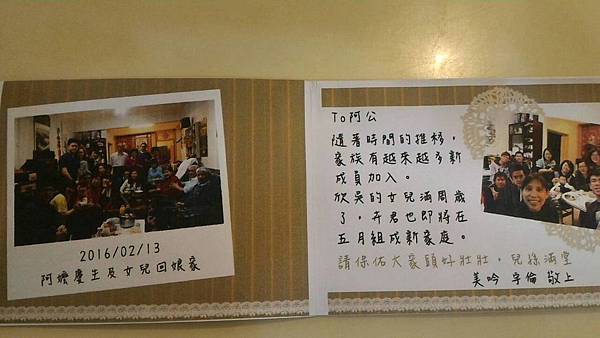 2016/02/13
阿嬤慶生及女兒回娘家
To阿公
隨著時間的推移，
家族有越來越多新
成員加入。
欣吳的女兒滿周歲
了，卉君也即將在
五月組成新家庭。
請保佑大家頭好壯壯，兒孫滿堂
美吟 宇倫 敬上